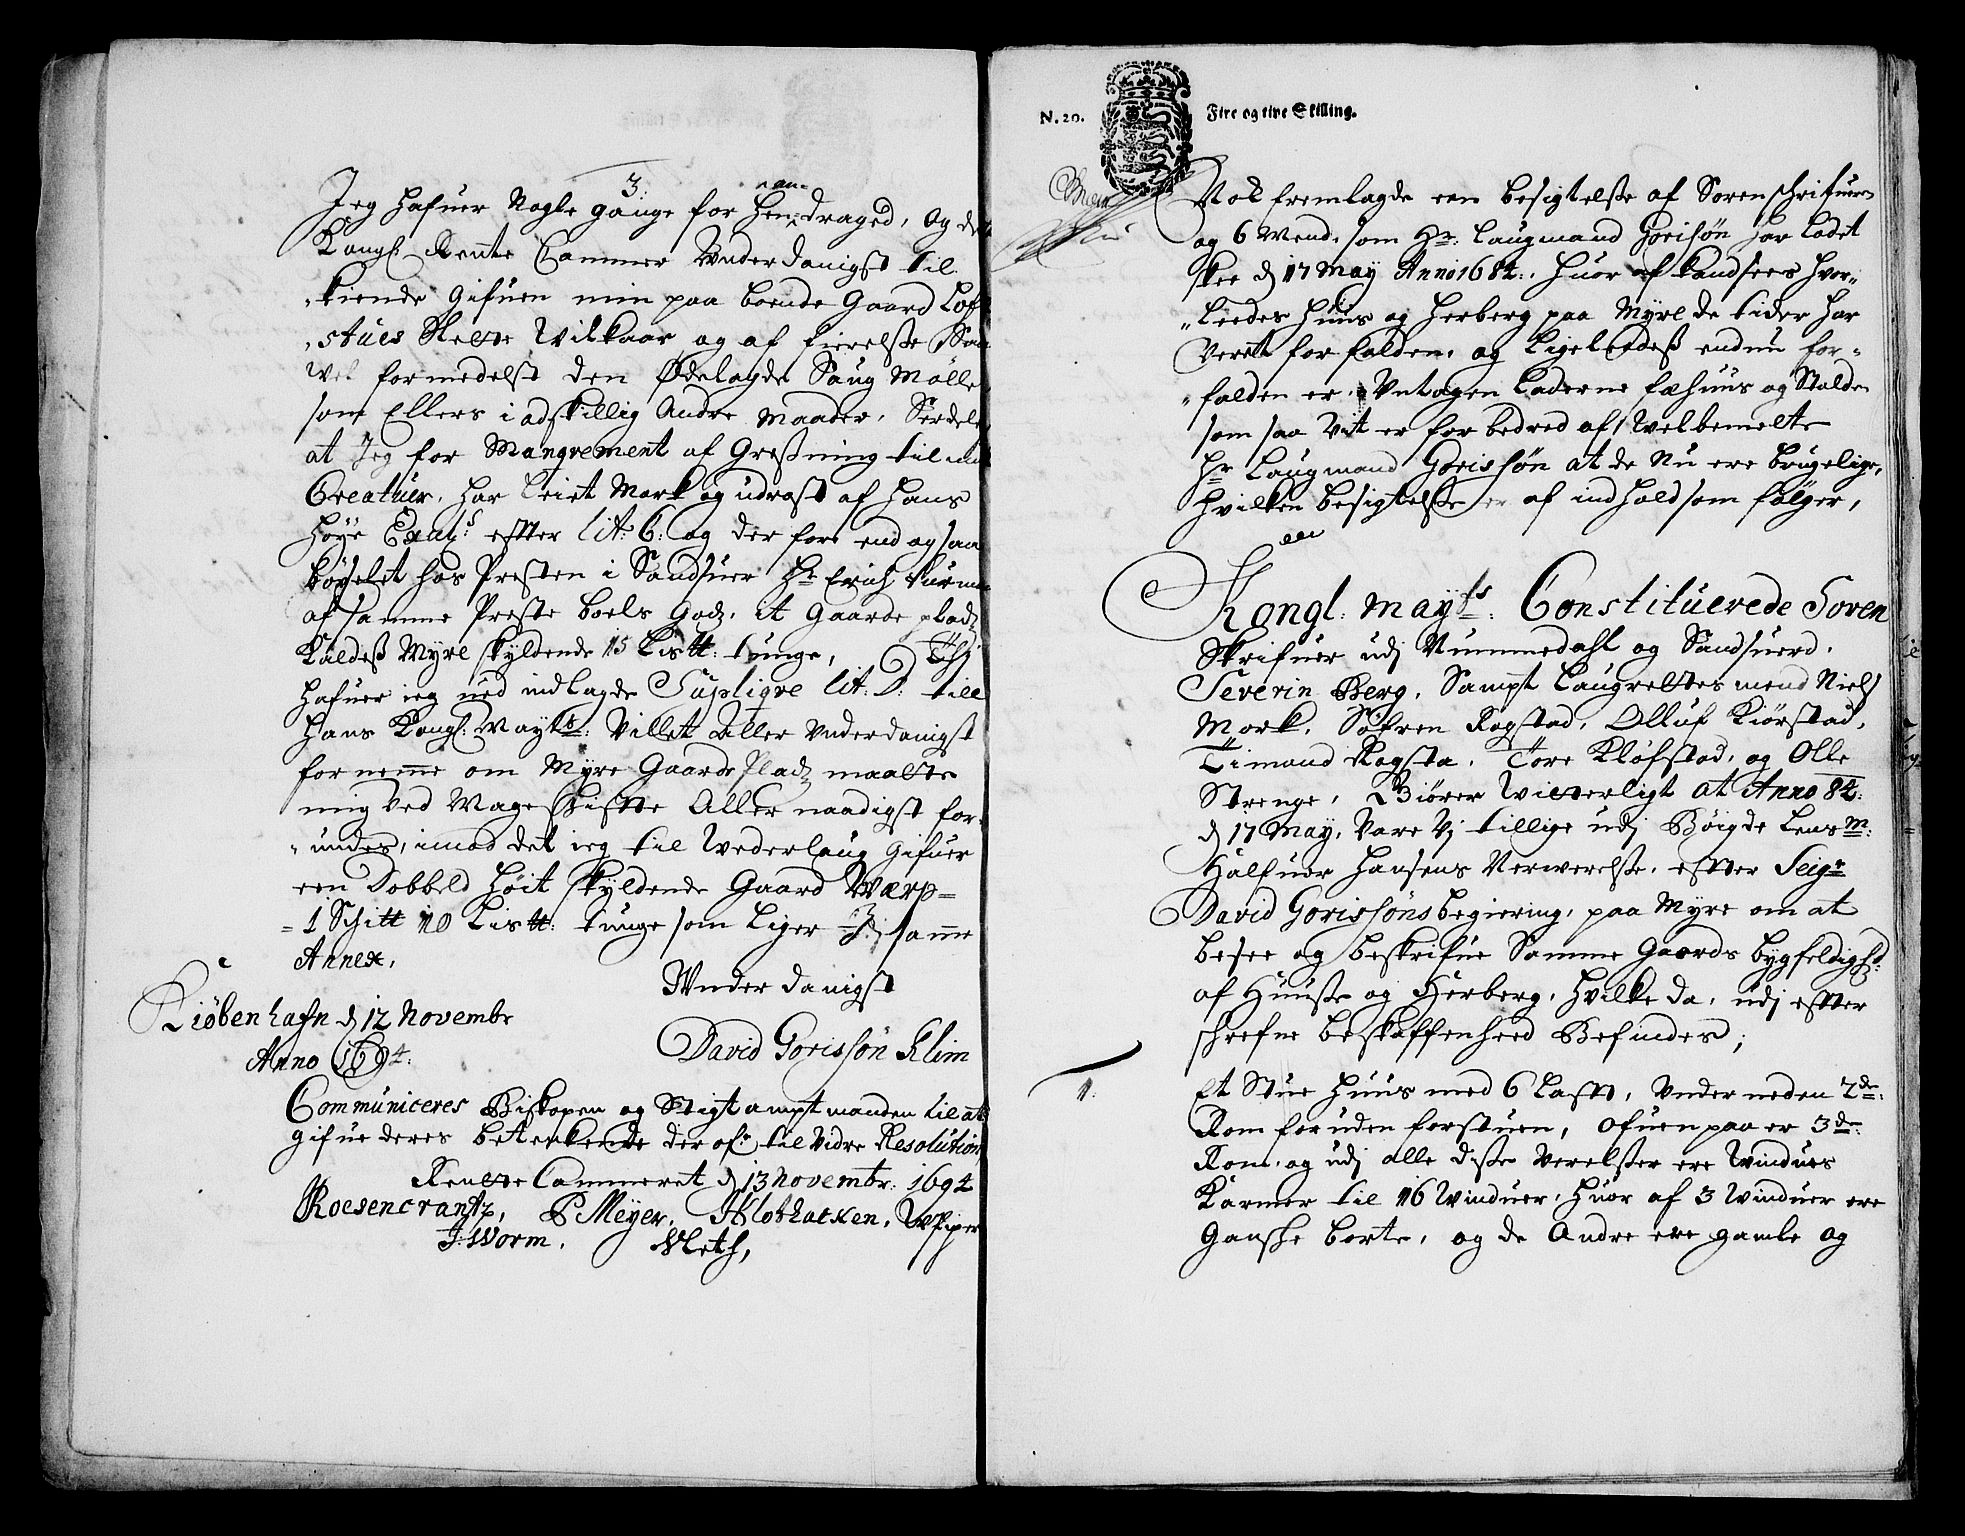 3.
Jeg hafuer Nogle gange for hen
andraged, Og det
Kongl: Rente Cammer Vnderdanigst til
kiende Gifuen min paa boende Gaard Lof
stues Slette Vilkaar og af fierelse Saa
vel formedelst den Ødelagde Saug Mølle
som Ellers i adskillig Andre Maader. Serdelis
at Jeg for Mangvement af Gresning til mit
Creatuer, har Leiet Mark og udrast af hans
Høye Excells efter lit: C: og der fore end og saa
bøxelet hos Presten i Sandsuer Hr Erich
af samme Preste boels Godz, it Gaarde pladz
Kaldeß Myre skyldende 15 Lis℔: tunge, Thj
hafuer ieg ued indlagde Supliqve lit: D: till
Hans Kongl: Mayts: Villet Aller Vnderdanigst
fornemme om Myre Gaards Pladz maatte
mig ved Mageskifte Aller naadigst for
undes, imod det ieg til Vederlaug Gifuer
een Dobbeld høit skyldende Gaard Wærp=
=1 Schill 10 Lis℔: tunge som Liger J samme
Annex,
Vnderdanigst
Kiøbenhafn d 12 Novembr
Anno 1694:
David Gorissøn Klim
Communiceres Biskopen og Stigtamptmanden til at
gifue deres betenkende der ofr til vidre Resolution,
Rente Cammeret d 13 Novembr: 1694
JRosencrantz, P Meyer, H Slothacken, WPiper
J: Worm. Meth,
N. 20. Fire og tive Skilling.
Nok fremlagde een besigtelße af Sorenschrifueren
og 6 Mend, som Hr: Laugmand Gorisøn har ladet
skee d 17 May Anno 1684: huor af kand sees hvor
leedes huus og herberg paa Myre de tider har
verett forfalden, og ligeledeß endnu for
falden er. Vntagen Laderne fæhuus og Stalden
som saa vit er forbedred af Welbemelte
Hr Laugmand Gorissøn at de Nu ere brugelige,
hvilken besigtelße er af indhold som følger,
Kongl: Mayts: Constituerede Soren
Skrifuer udj Nummedahl og Sandsuerd.
Severin Berg, Sampt Laugrettes mend Niels
Mork, Søfren Rogstad, Olluf Kiørstad,
Timand Rogsta, Tore Kløfstad, og Olle
Strenge, Giører Witterligt at Anno 84:
d 17 May, Vare Vj tillige udj Bøigde Lensm:
Halfuor Hansens Nerwerelse, efter Seigr
David Gorissøns begiering, paa Myre om at
besee og beskrifue Samme Gaards bygfeldighd:
af Huuße og Herberg, hvilke da, udj efter
schrefne beskaffenheed Befindes;
1. Et Stue huus med 6 Laft, Vnder neden 2de:
Rom foruden forstuen, ofuen paa er 3de:
Rom, og udj alle diße Verelßer ere Vindues
Karmer til 16 Vinduer, huor af 3 Vinduer ere
Ganske borte, og de Andre ere gamle og